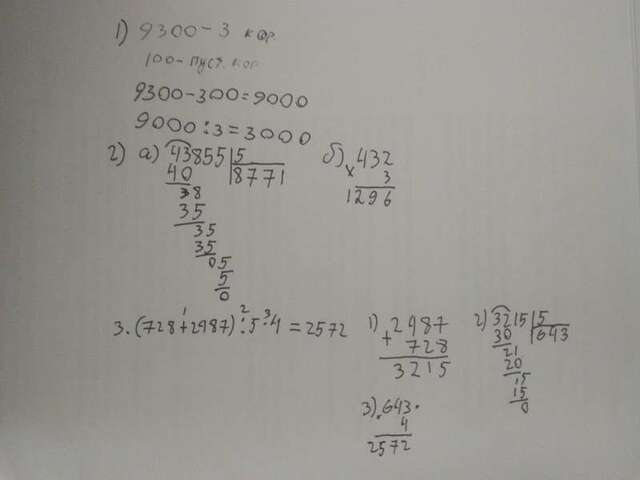 1) 9300 - 3 кор.
100 - пуст. кор.
9300-300=9000
9000:3=3000
2) а) 43855 | 5
40 8771
38
35
35
35
05
5
0
б) 432
× 3
1296
3. (728+2987):5·4=2572
1 2 3
1) 2987
+ 728
3215
2) 3215 | 5
30 643
21
20
15
15
0
3) 643
× 4
2572